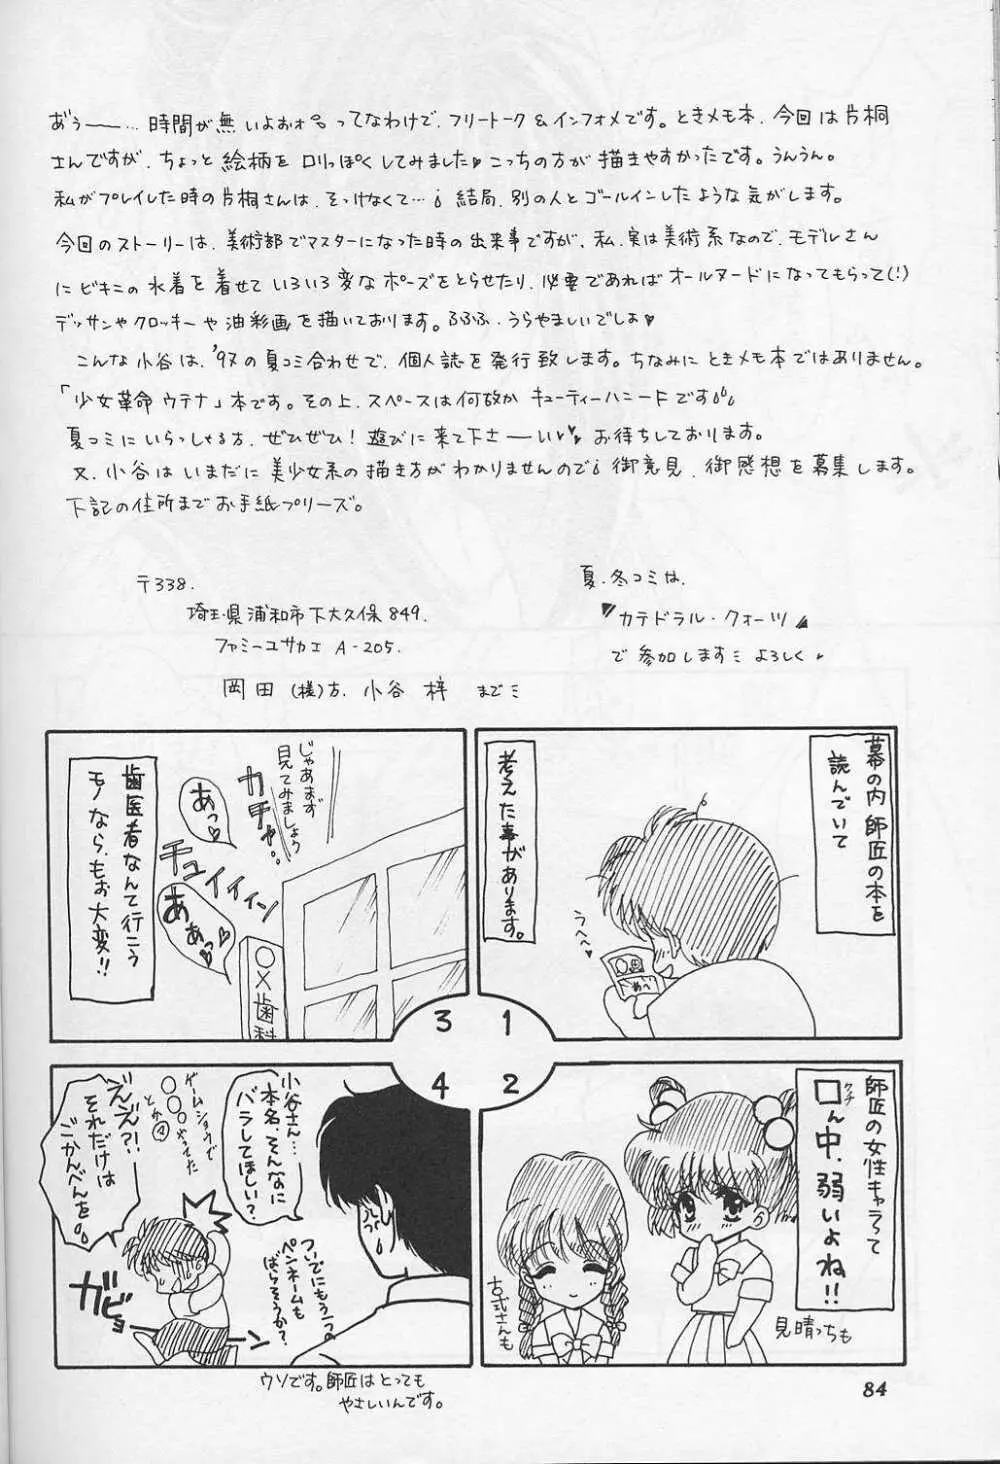 あ゛う──…時間が無いよおォ。ってなわけで、フリートーク&インフォメです。ときメモ本、今回は片桐
さんですが、ちょっと絵柄をロリっぽくしてみました♥こっちの方が描きやすかったです。うんうん。
私がプレイした時の片桐さんは、そっけなくて…結局、別の人とゴールインしたような気がします。
今回のストーリーは、美術部でマスターになった時の出来事ですが、私、実は美術系なので、モデルさん
にビキニの水着を着せていろいろ変なポーズをとらせたり、必要であればオールヌードになってもらって(!)
デッサンやクロッキーや油彩画を描いております。ふふふ、うらやましいでしょ♥
こんな小谷は、'97の夏コミ合わせで、個人誌を発行致します。ちなみにときメモ本ではありません。
「少女革命ウテナ」本です。その上、スペースは何故かキューティーハニーFです
夏コミにいらっしゃる方、ぜひぜひ!遊びに来て下さーい♥♥お待ちしております。
又、小谷はいまだに美少女系の描き方がわかりませんので御意見、御感想を募集します。
下記の住所までお手紙プリーズ。
〒338.
埼玉県浦和市下大久保849.
ファミーユサカエ A-205.
岡田(様)方、小谷 梓 まで
夏、冬コミは、
"カテドラル・クォーツ"
で参加します よろしく
幕の内師匠の本を
読んでいて
考えた事があります。
うへへ♥
1
師匠の女性キャラって
口ん中、弱いよね!!
クチ
見晴っちも
古式さんも
2
じゃあまず
見てみましょう
カチャ。
あっ♥
チュイイイン
ああっ♥
歯医者なんて行こう
モノなら、もお大変!!
○×歯科
3
小谷さん…
本名、そんなに
バラしてほしい?
ついでにもう一つの
ペンネームも
ばらそうか?
ゲームショウで
○○○やってた
とか
えぇ?!
それだけは
ごかんべんを。
ガビョーン
4
ウソです。師匠はとっても
やさしいんです。
84